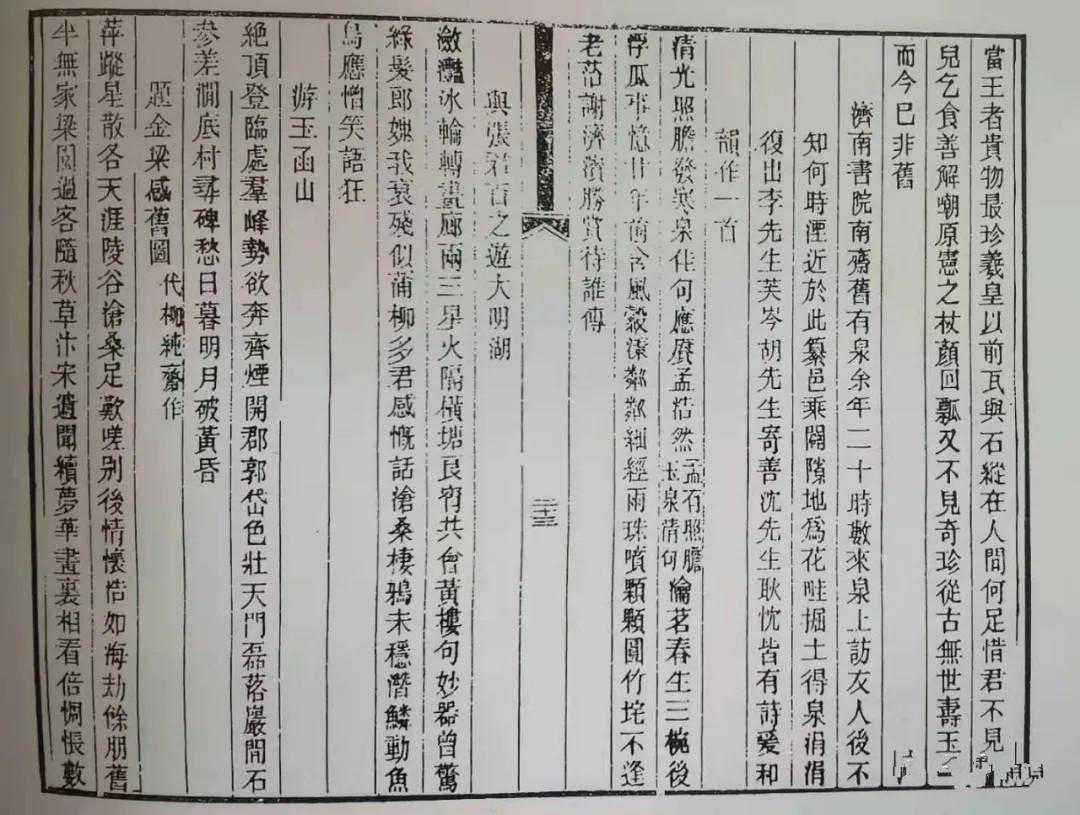 當王者貴物最珍羲皇以前瓦與石縱在人間何足惜君不見
兒乞食善解嘲原憲之杖顏回瓢又不見奇珍從古無世壽玉
而今已非舊
濟南書院南齋舊有泉余年二十時數來泉上訪友人後不
知何時湮近於此纂邑乘闢隙地為花畦掘土得泉涓涓
復出李先生芙岑胡先生寄善沈先生耿忱皆有詩爰和
韻作一首
清光照膽發寒泉佳句應賡孟浩然孟有照膽玉泉清句瀹茗春生三椀後
浮瓜事憶廿年前含風縠漾粼粼細經雨珠噴顆顆圓竹垞不逢
老茫謝濟濱勝賞待誰傳
二十三
與張君百之遊大明湖
瀲灩冰輪轉畫廊兩三星火隔橫塘良宵共會黃樓句妙器曾驚
綠髮郎媿我衰殘似蒲柳多君感慨話滄桑棲鴉未穩潛鱗動魚
鳥應憎笑語狂
游玉函山
絕頂登臨處羣峰勢欲奔齊煙開郡郭岱色壯天門磊落巖間石
參差澗底村尋碑愁日暮明月破黃昏
題金梁感舊圖 代柳純齋作
萍蹤星散各天涯陵谷滄桑足歎嗟別後情懷浩如海劫餘朋舊
半無家梁園過客隨秋草汴宋遺聞續夢華畫裏相看倍惆悵數